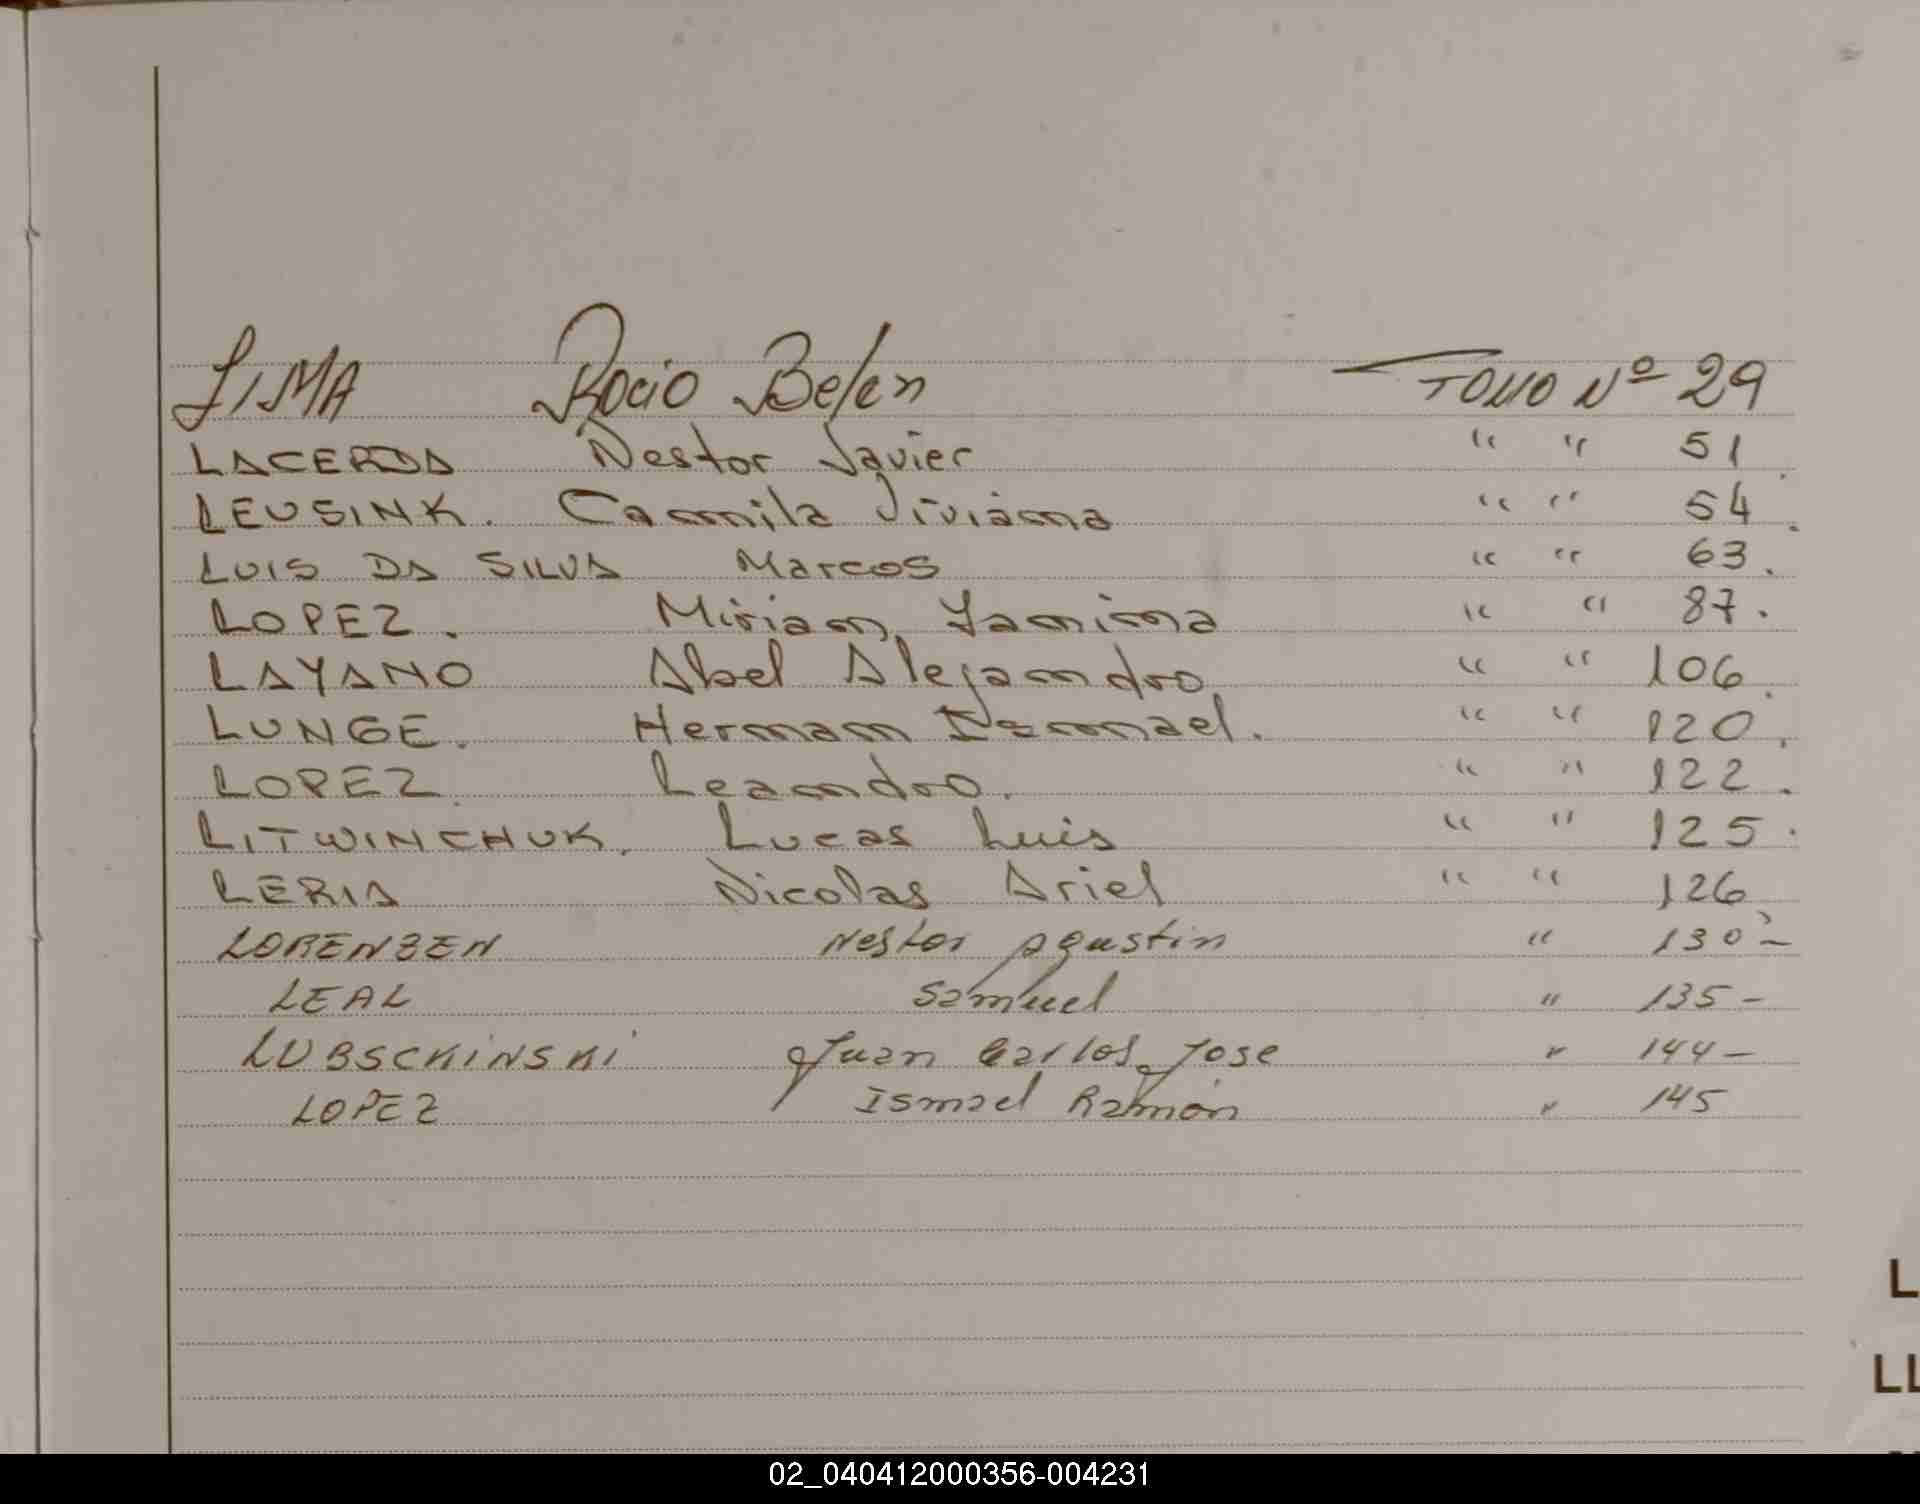 LIMA Rocio Belen TOMO Nº 29
LACERDA Nestor Javier " " 51
LEUSINK. Camila Viviana " " 54.
LUIS DA SILVA Marcos " " 63.
LOPEZ. Miriam Yamina " " 87.
LAYANO Abel Alejandro " " 106.
LUNGE. Hernan Ismael. " " 120.
LOPEZ. Leandro. " " 122.
LITWINCHUK. Lucas Luis " " 125.
LERIA Nicolas Ariel " " 126
LORENZEN Nestor Agustin " 130-
LEAL Samuel " 135-
LUBSCKINSKI Juan Carlos Jose " 144-
LOPEZ Ismael Ramón " 145
L
LL
02_040412000356-004231